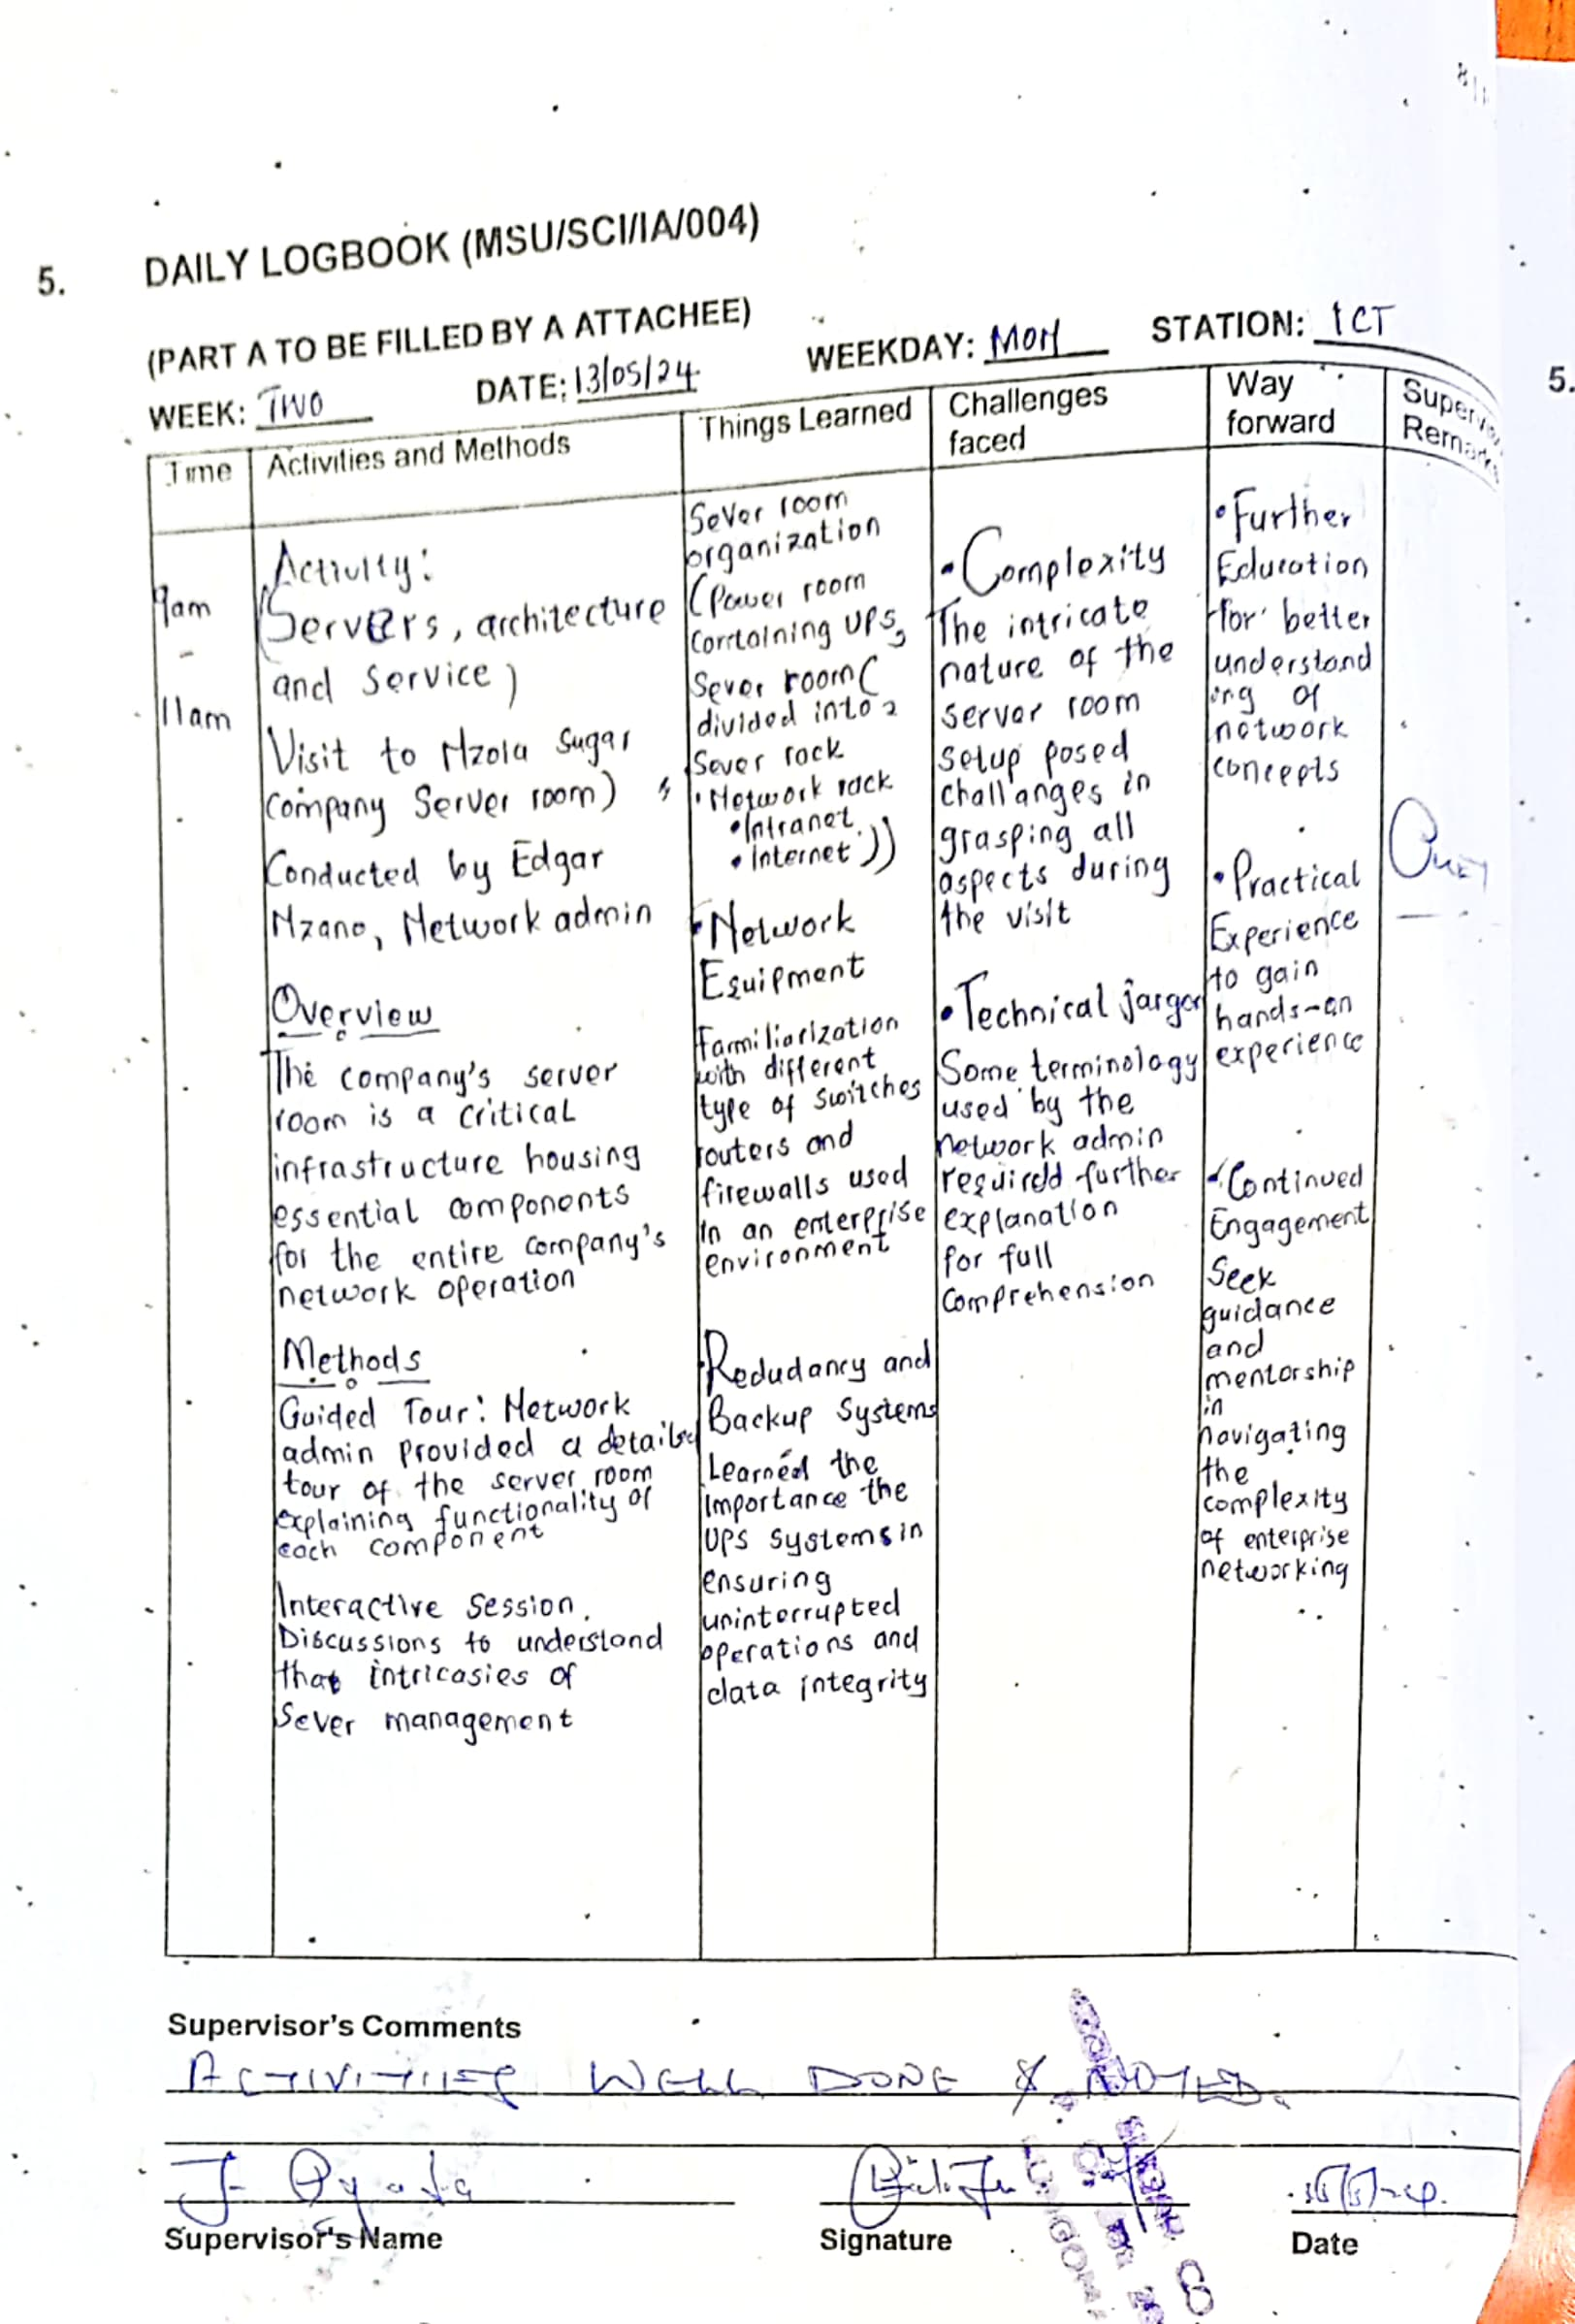 5. DAILY LOGBOOK (MSU/SCI/IA/004)
(PART A TO BE FILLED BY A ATTACHEE)
WEEK: TWO DATE: 13/05/24 WEEKDAY: MON STATION: ICT
Time
Activities and Methods
Things Learned
Challenges
faced
Way
forward
Remarks
9am
-
11am
Activity:
(Servers, architecture
and Service)
Visit to Nzoia Sugar
Company Server room)
Conducted by Edgar
Nzano, Network admin
Overview
The company's server
room is a critical
infrastructure housing
essential components
for the entire company's
network operation
Methods
Guided Tour: Network
admin provided a detailed
tour of the server room
explaining functionality of
each component
Interactive Session.
Discussions to understand
that intricasies of
Sever management
Sever room
organization
(Power room
containing UPS,
Sever room(
divided into 2
Sever rack
• Network rack
• Intranet
• Internet))
• Network
Equipment
Familiarization
with different
type of switches
routers and
firewalls used
in an enterprise
environment
Redudancy and
Backup Systems
Learned the
importance the
UPS systems in
ensuring
uninterrupted
operations and
data integrity
• Complexity
The intricate
nature of the
server room
setup posed
challanges in
grasping all
aspects during
the visit
• Technical jargon
Some terminology
used by the
network admin
required further
explanation
for full
comprehension
• Further
Education
for better
understand
ing of
network
concepts
• Practical
Experience
to gain
hands-on
experience
• Continued
Engagement
Seek
guidance
and
mentorship
in
navigating
the
complexity
of enterprise
networking
Supervisor's Comments
ACTIVITIES WELL DONE & NOTED.
Supervisor's Name
Signature
Date
5.